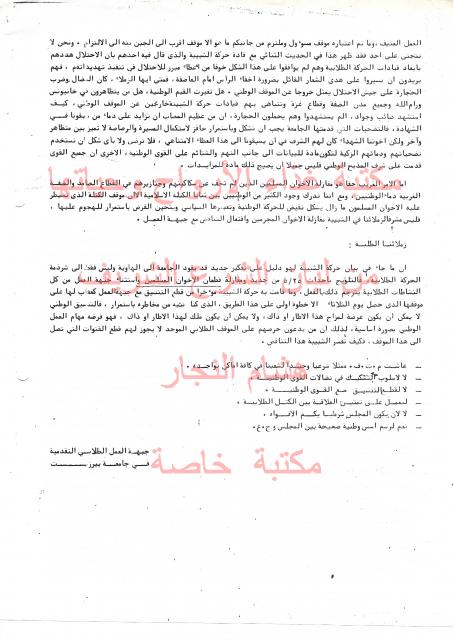 العمل العنيف ، وما تم اعتباره موقف مسؤول وملتزم من جانبكم ما هو الا موقف اقرب الى الجبن منه الى الالتزام . ونحن لا
نتجنى على احد فقد ظهر هذا في الحديث الثنائي مع قادة حركة الشبيبة والذي قال فيه احدهم بان الاحتلال هددهم
بابعاد قيادات الحركة الطلابية وهم لم يوافقوا على هذا الشكل خوفا من
يريدون ان يسيروا على هدي الشعار القائل بضرورة اخفاء الرأس امام العاصفة ، فمتى ايها الزملاء كان النضال وضرب
الحجارة على جيش الاحتلال يمثل خروجا عن الموقف الوطني ، هل تغيرت القيم الوطنية ، هل من يتظاهرون في خانيونس
ورام الله وجميع مدن الضفة وقطاع غزة وتتباهى بهم قيادات حركة الشبيبة خارجين عن الموقف الوطني ، كيف
استشهد صائب وجواد ، الم يستشهدوا وهم يحملون الحجارة ، ان من عظيم المصاب ان نزايد على دماء من يفوقنا في
الشهادة ، فالتضحيات التي قدمتها الجامعة يجب ان تشكل وباستمرار حافز لاستكمال المسيرة والرصاصة لا تميز بين متظاهر
وآخر ولكن اخوتنا الشهداء كان لهم الشرف في ان يسبقونا الى هذا العطاء الامتناهي ، فلا نرضى ولا بأي شكل ان نستخدم
تضحياتهم ودمائهم الزكية لتكون مادة للبيانات الى جانب التهم والشتائم على القوى الوطنية ، الاخرى ان جميع القوى
قدمت على شرف المذبح الوطني فليس جميلا ان يصبح ذلك مادة للمزايدات .
اما الامر الغريب حقا هو مغازلة الاخوان المسلمين الذين لم تجف عن سكاكينهم وجنازيرهم في القطاع الصامد والضفة
الغربية دماء الوطنيين . ومع اننا ندرك وجود الكثير من الوطنيين بين ثنايا الكتلة الاسلامية الا ان موقف الكتلة الذي يسيطر
عليه الاخوان المسلمون ما زال يشكل نقيض للحركة الوطنية
فليس مشرفا لزملائنا في الشبيبة مغازلة الاخوان المجرمين وافتعال التصادم مع جبهة العمل .
زملائنا الطلبة :
ان ما جاء في بيان حركة الشبيبة لهو دليل على تفكير جديد قد يقود الجامعة الى الهاوية وليس فقط الى شرذمة
الحركة الطلابية . فالتلويح باحداث ٥/٢٥ من جديد ومغازلة قطعان الاخوان المسلمين واستثناء جبهة العمل من كل
النشاطات الطلابية يترجم ذلك بالفعل ، وما قامت به حركة الشبيبة مؤخرا من قطع التنسيق مع جبهة العمل كعقاب لها على
موقفها الذي حصل يوم الثلاثاء الا خطوة اولى على هذا الطريق ، الذي كنا ننبه من مخاطره باستمرار ، فالتنسيق الوطني
لا يمكن ان يكون عرضة لمزاج هذا الاطار او ذاك ، ولا يمكن ان يكون ملك لهذا الاطار او ذاك ، فهو فرضه مهام العمل
الوطني بصورة اساسية ، لذلك ان من يدعون حرصهم على الموقف الطلابي الموحد لا يجوز لهم قطع القنوات التي تصل
الى هذا الموقف ، كيف تفسر الشبيبة هذا التناقض .
ــ عاشت م ٠ت ٠ف ٠ ممثلا شرعيا وحيدا لشعبنا في كافة اماكن تواجده .
ــ لا لاسلوب التشكيك في نضالات القوى الوطنية .
ــ لا لقطع التنسيق مع القوى الوطنية .
ــ لنعمل على تمتين العلاقة بين الكتل الطلابية .
ــ لا لان يكون المجلس شرطيا يكمم الافواه .
ــ نعم لرسم اسس وطنية صحيحة بين المجلس و ج٠ع٠
جبهة العمل الطلابي التقدمية
في جامعة بيرزيت
مكتبة
هشام النجار
مكتبة خاصة